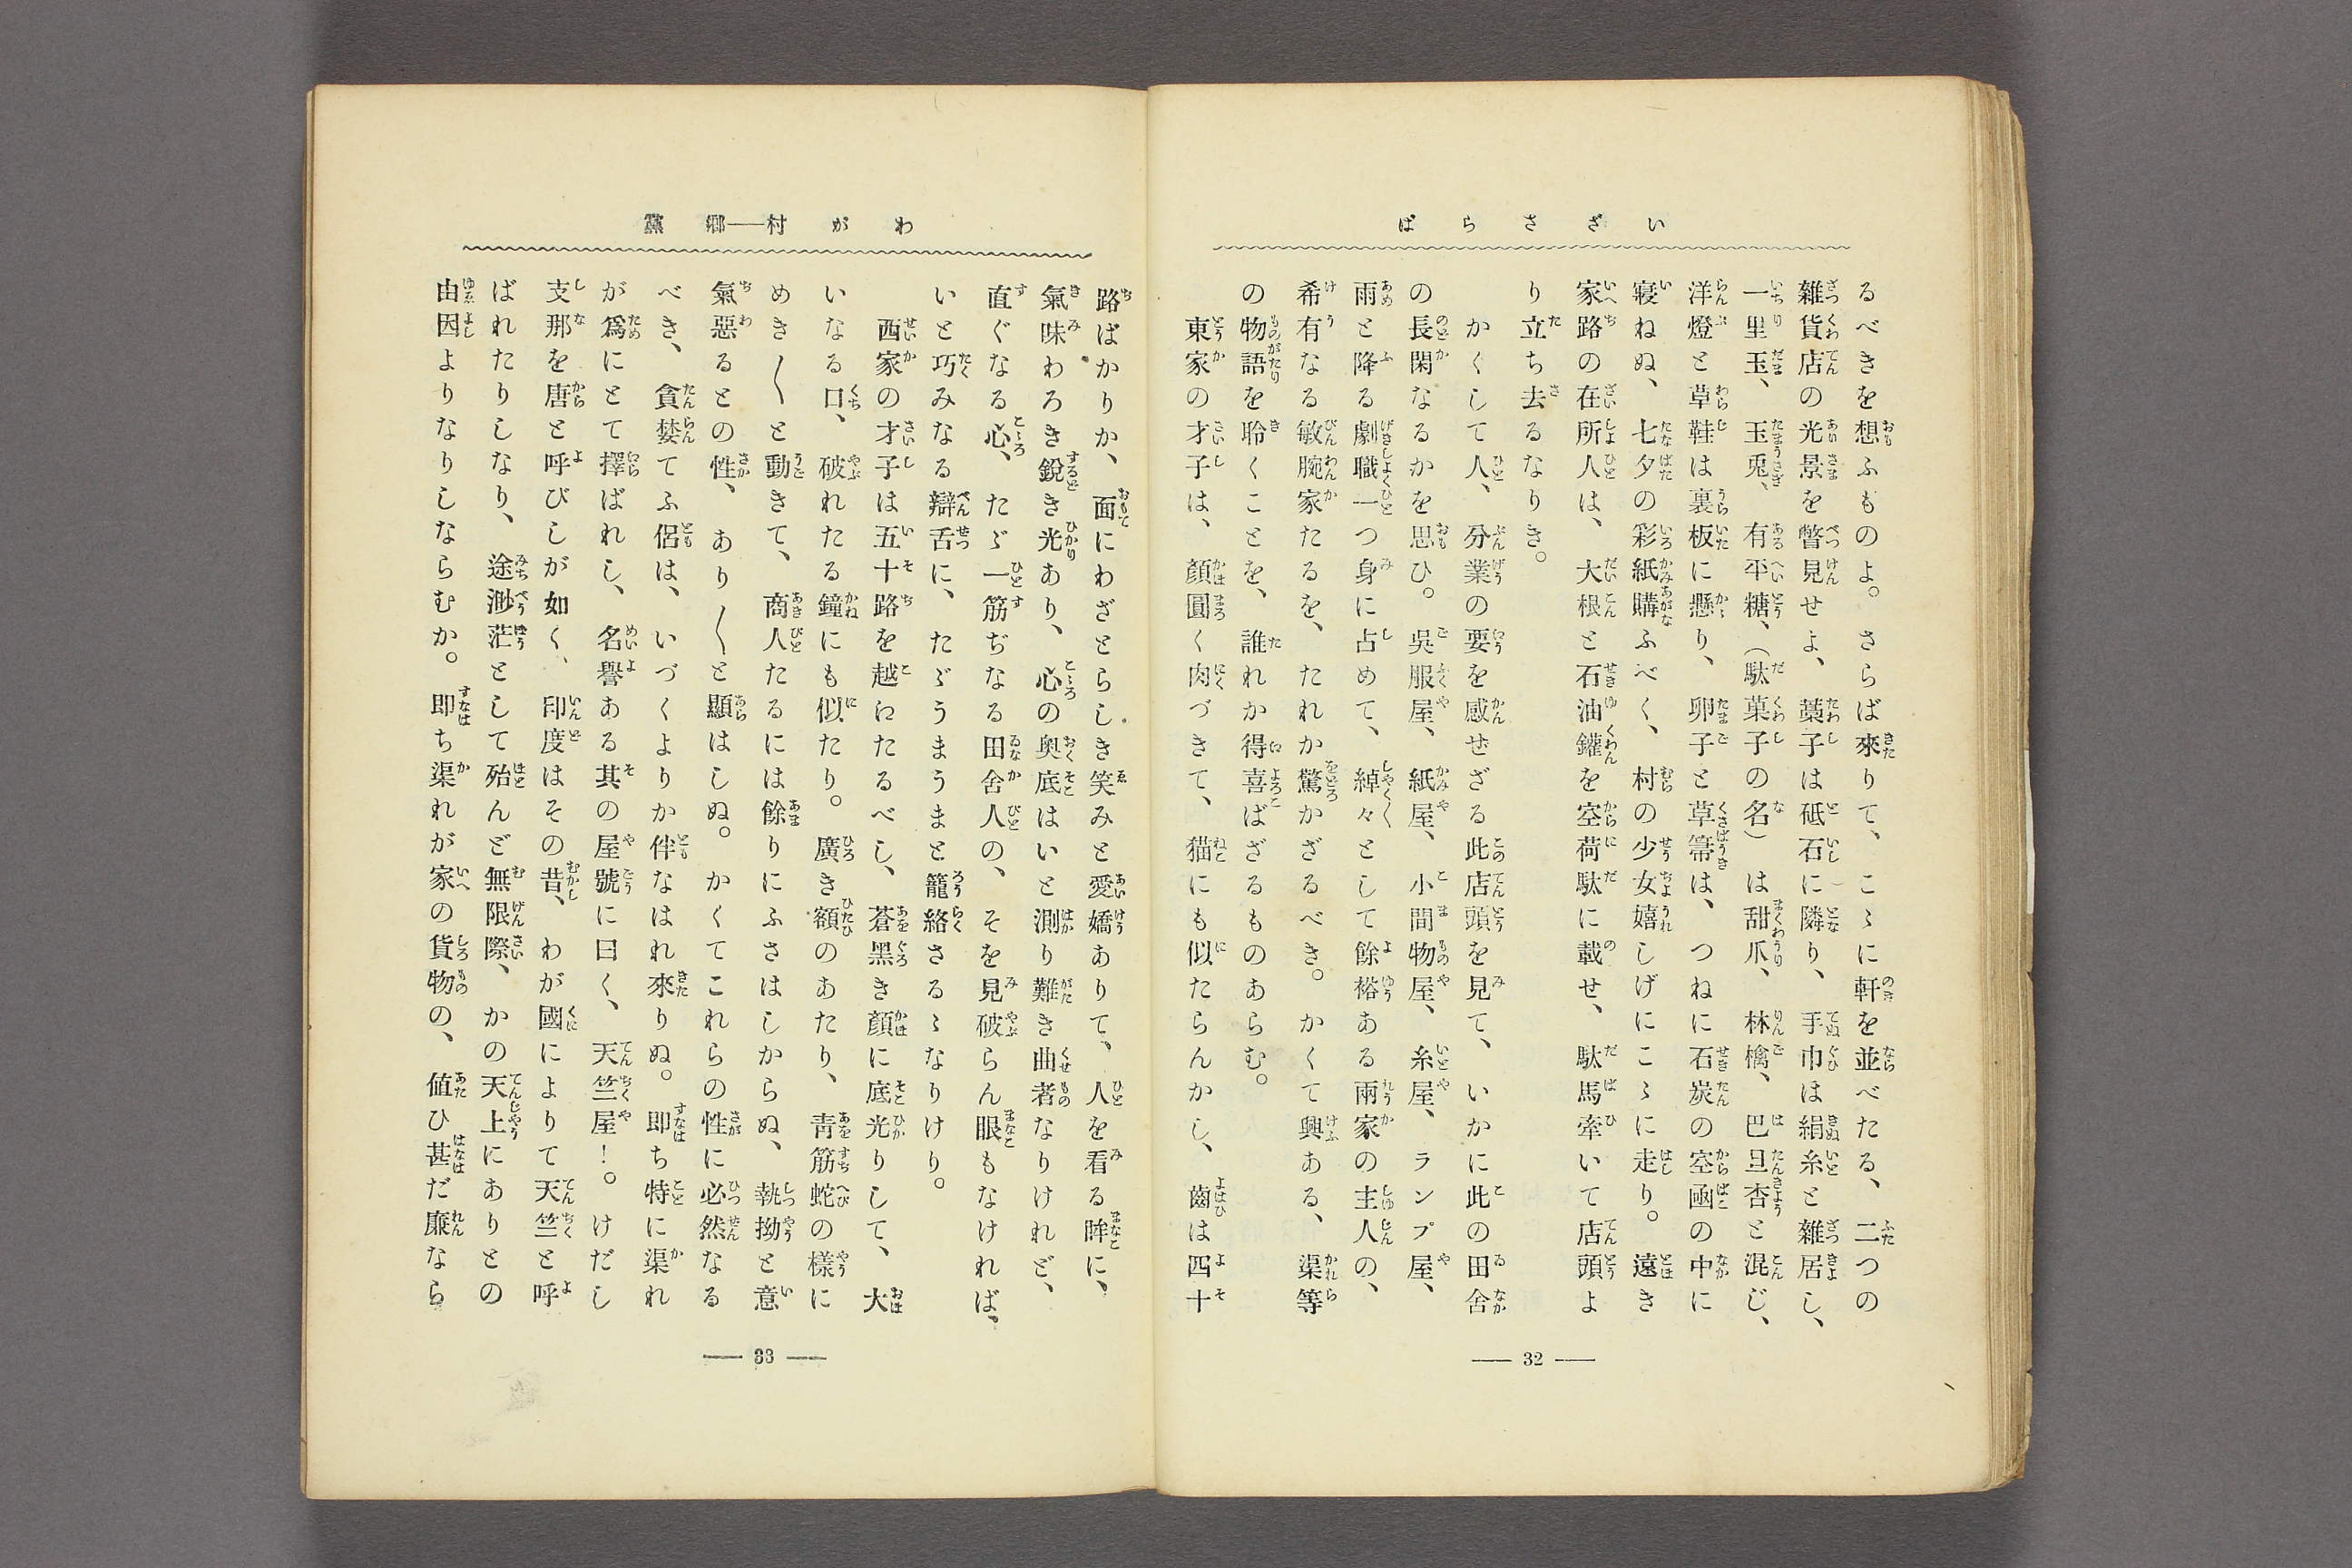 いざさらば
るべきを想ふものよ。さらば來りて、こゝに軒を並べたる、二つの
雜貨店の光景を瞥見せよ、藁子は砥石に隣り、手巾は絹糸と雜居し、
一里玉、玉兎、有平糖、（駄菓子の名）は甜瓜、林檎、巴旦杏と混じ、
洋燈と草鞋は裏板に懸り、卵子と草箒は、つねに石炭の空凾の中に
寢ねぬ、七夕の彩紙購ふべく、村の少女嬉しげにこゝに走り。遠き
家路の在所人は、大根と石油鑵を空荷駄に載せ、駄馬牽いて店頭よ
り立ち去るなりき。
かくして人、分業の要を感ぜざる此店頭を見て、いかに此の田舍
の長閑なるかを思ひ。吳服屋、紙屋、小間物屋、糸屋、ランプ屋、
雨と降る劇職一つ身に占めて、綽々として餘裕ある兩家の主人の、
希有なる敏腕家たるを、たれか驚かざるべき。かくて興ある、渠等
の物語を聆くことを、誰れか得喜ばざるものあらむ。
東家の才子は、顏圓く肉づきて、猫にも似たらんかし、齒は四十
― 32 ―
わが村―鄕黨
路ばかりか、面にわざとらしき笑みと愛嬌ありて、人を看る眸に、
氣味わろき銳き光あり、心の奧底はいと測り難き曲者なりけれど、
直ぐなる心、たゞ一筋ぢなる田舍人の、そを見破らん眼もなければ、
いと巧みなる辯舌に、たゞうまうまと籠絡さるゝなりけり。
西家の才子は五十路を越江たるべし、蒼黑き顏に底光りして、大
いなる口、破れたる鐘にも似たり。廣き額のあたり、靑筋蛇の樣に
めき〱と動きて、商人たるには餘りにふさはしからぬ、執拗と意
氣惡るとの性、あり〱と顯はしぬ。かくてこれらの性に必然なる
べき、貪婪てふ侶は、いづくよりか伴なはれ來りぬ。即ち特に渠れ
が爲にとて擇ばれし、名譽ある其の屋號に曰く、天竺屋！。けだし
支那を唐と呼びしが如く、印度はその昔、わが國によりて天竺と呼
ばれたりしなり、途渺茫として殆んど無限際、かの天上にありとの
由因よりなりしならむか。即ち渠れが家の貨物の、値ひ甚だ廉なら
― 33 ―